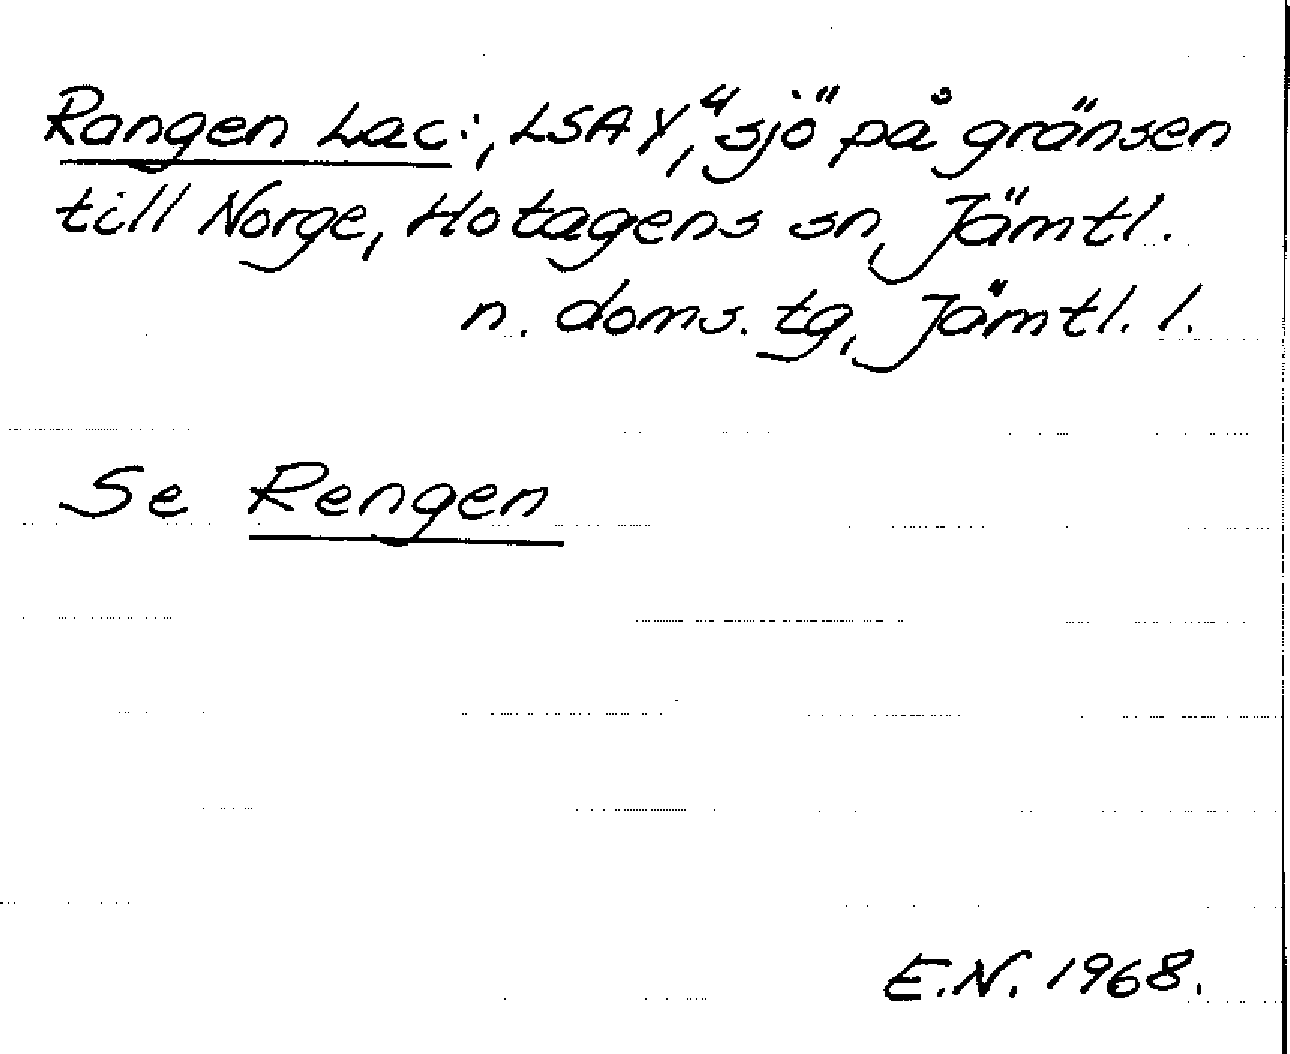 Rangen Lac:, LSA Y, "sjö" på gränsen
till Norge, Hotagens sn, Jämtl.
n. doms. tg, Jämtl. l.
Se Rengen
E.N. 1968.